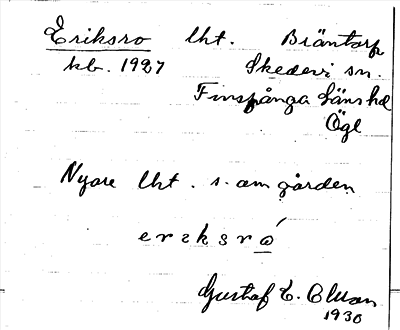 Eriksro lht. Bräntorp
kb. 1927 Skedevi sn.
Finspånga läns hd
Ögl
Nyare lht. s. om gården
e r ɩ k s r ó
Gustaf E. Olsson
1930